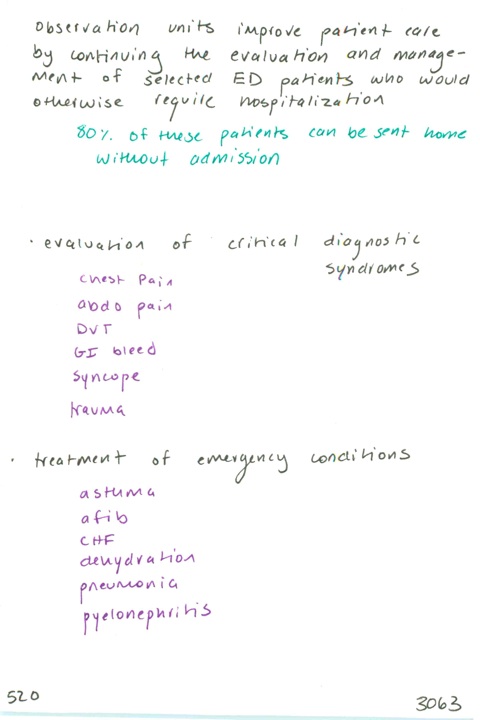 Observation units improve patient care
by continuing the evaluation and manage-
ment of selected ED patients who would
otherwise require hospitalization
80% of these patients can be sent home
without admission
· evaluation of critical diagnostic
syndromes
chest pain
abdo pain
DVT
GI bleed
syncope
trauma
· treatment of emergency conditions
asthma
afib
CHF
dehydration
pneumonia
pyelonephritis
520
3063